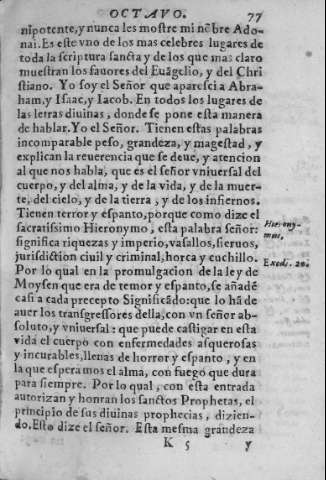 OCTAVO. 77
nipotente, y nunca les mostre mi nõbre Ado-
nai. Es este vno de los mas celebres lugares de
toda la scriptura sancta y de los que mas claro
muestran los fauores del Euãgelio, y del Chri
stiano. Yo soy el Señor que aparesci a Abra-
ham, y Isaac, y Iacob. En todos los lugares de
las letras diuinas, donde se pone esta manera
de hablar. Yo el Señor. Tienen estas palabras
incomparable peso, grandeza, y magestad, y
explican la reuerencia que se deue, y atencion
al que nos habla, que es el señor vniuersal del
cuerpo, y del alma, y de la vida, y de la muer-
te, del cielo, y de la tierra, y de los infiernos.
Tienen terror y espanto, porque como dize el
sacratissimo Hieronymo, esta palabra señor:
Hierony-
mus,
significa riquezas y imperio, vasallos, sieruos,
jurisdiction ciuil y criminal, horca y cuchillo.
Exod. 20.
Por lo qual en la promulgacion de la ley de
Moysen que era de temor y espanto, se añade
casi a cada precepto Significãdo: que lo há de
auer los transgressores della, con vn señor ab-
soluto, y vniuersal: que puede castigar en esta
vida el cuerpo con enfermedades asquerosas
y incurables, llenas de horror y espanto, y en
la que esperamos el alma, con fuego que dura
para siempre. Por lo qual, con esta entrada
autorizan y honran los sanctos Prophetas, el
principio de sus diuinas prophecias, dizien-
do. Esto dize el señor. Esta mesma grandeza
K 5 y